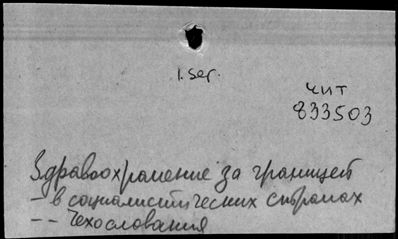 1. ser.
чит
833503
Здравоохранение за границей
- в социалистических странах
- - Чехословакия